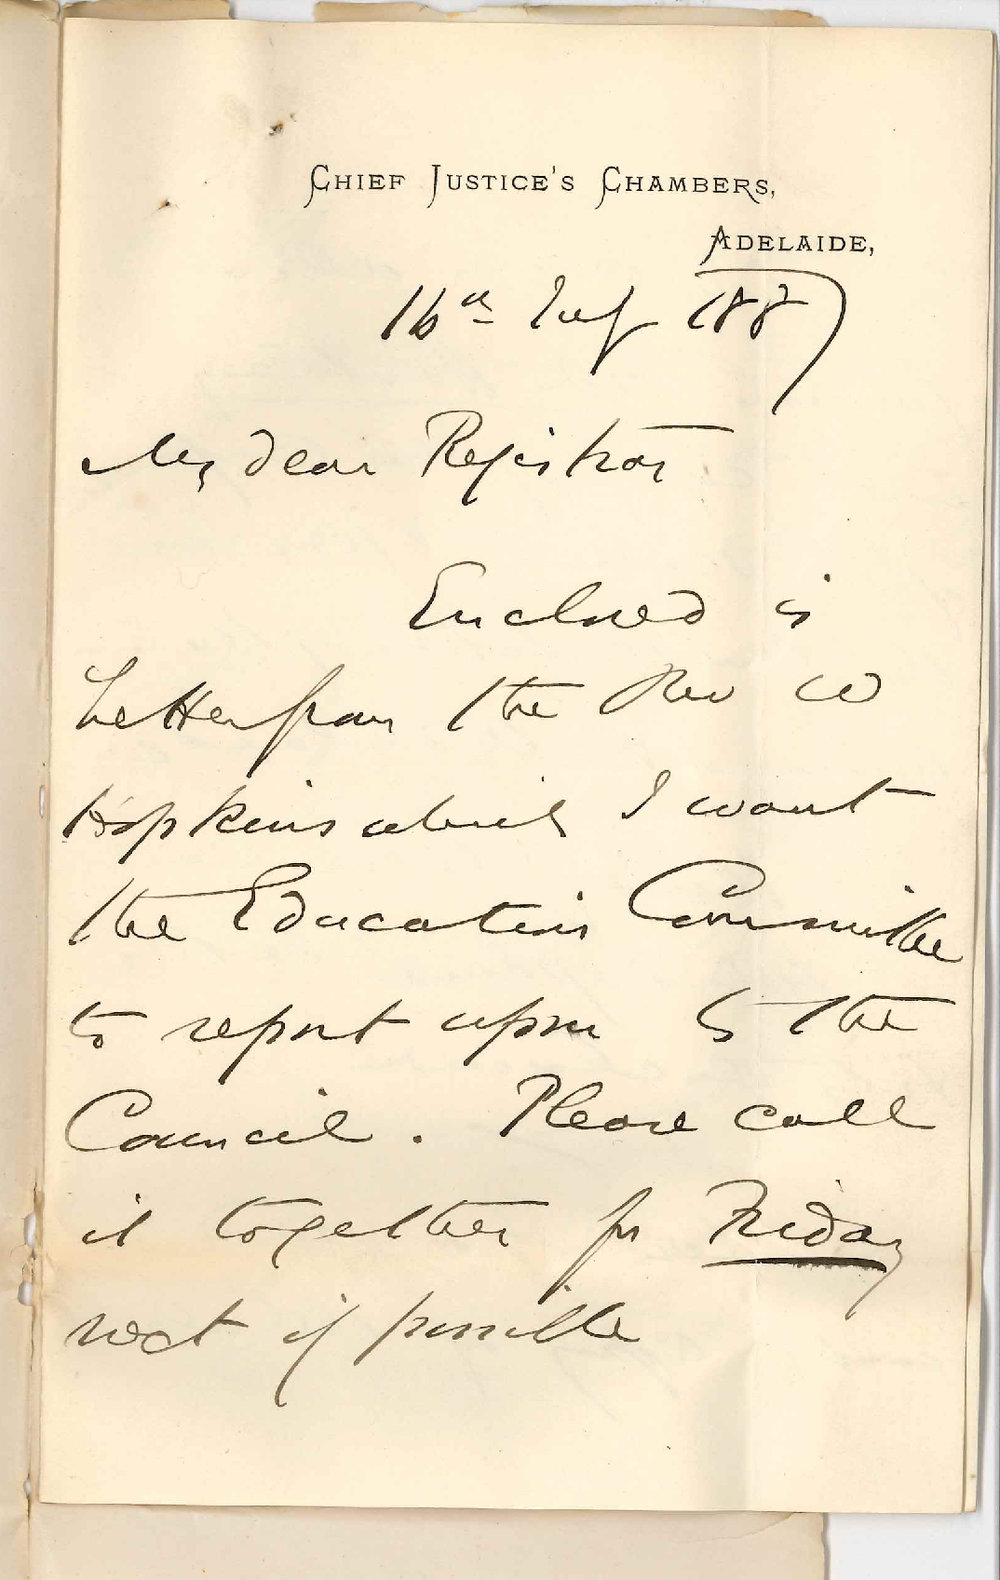 CHIEF JUSTICE'S CHAMBERS,
ADELAIDE,
16th July 1887
My dear Registrar
Enclosed is
letter from the Rev W
Hopkins which I want
the Education Committee
to report upon to the
Council. Please call
it together for Friday
next if possible